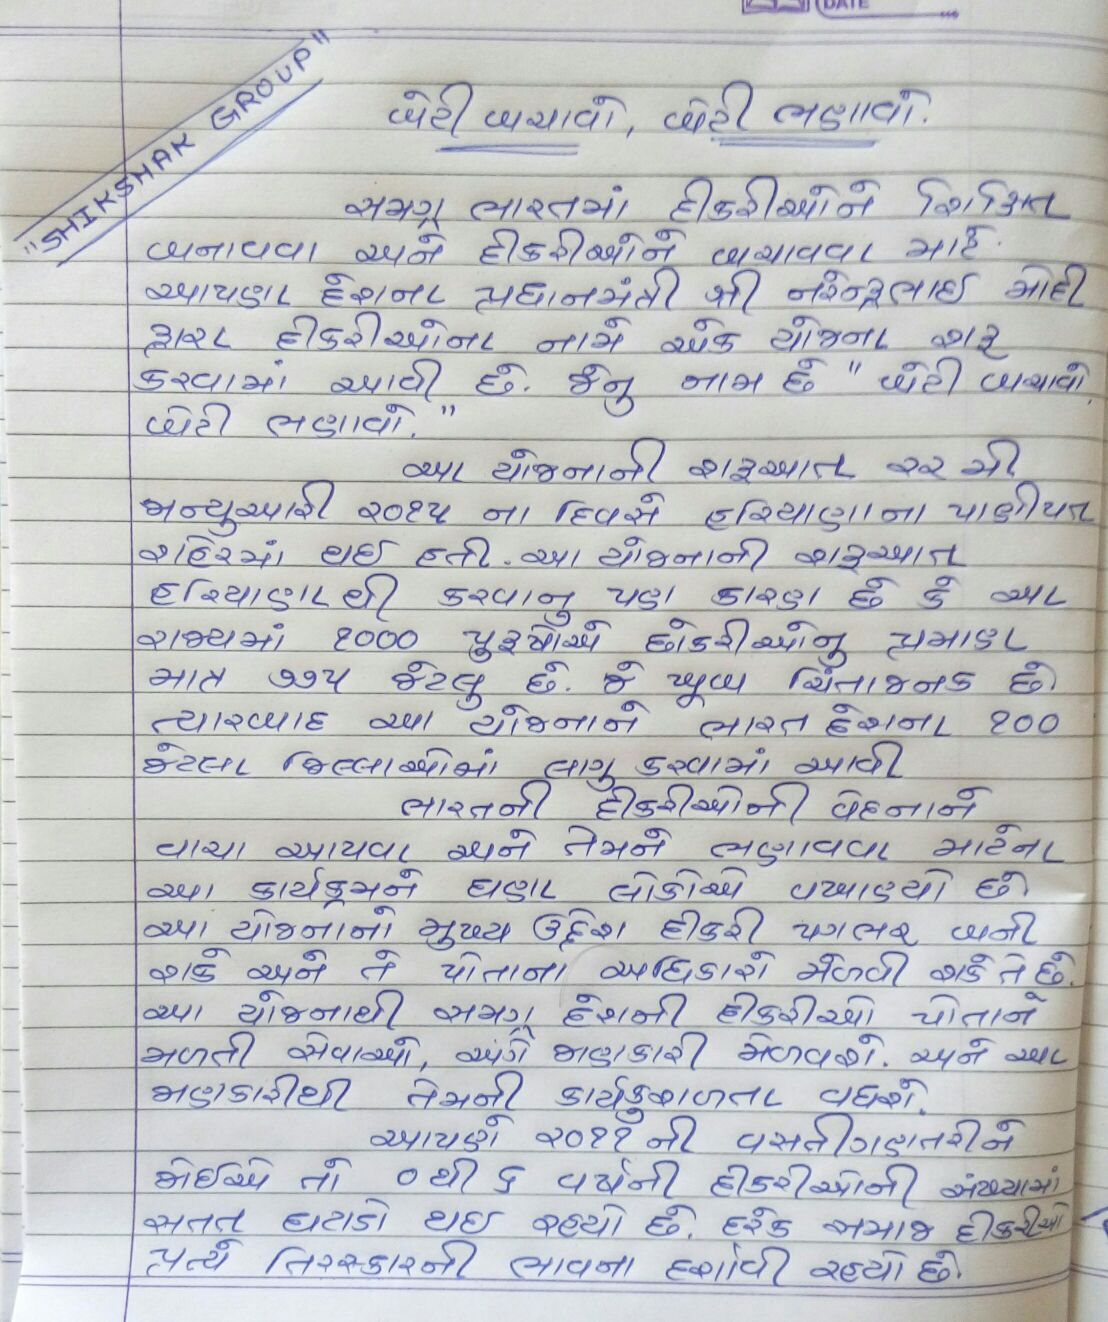 DATE
"SHIKSHAK GROUP"
બેટી બચાવો, બેટી ભણાવો.
સમગ્ર ભારતમાં દીકરીઓને શિક્ષિત
બનાવવા અને દીકરીઓને બચાવવા માટે
આપણા દેશના પ્રધાનમંત્રી શ્રી નરેન્દ્રભાઇ મોદી
દ્વારા દીકરીઓના નામે એક યોજના શરૂ
કરવામાં આવી છે. જેનુ નામ છે "બેટી બચાવો,
બેટી ભણાવો."
આ યોજનાની શરૂઆત ૨૨ મી
જાન્યુઆરી ૨૦૧૫ ના દિવસે હરિયાણાના પાણીપત
શહેરમાં થઇ હતી. આ યોજનાની શરૂઆત
હરિયાણાથી કરવાનુ પણ કારણ છે કે આ
રાજ્યમાં ૧000 પુરૂષોએ છોકરીઓનુ પ્રમાણ
માત્ર ૭૭૫ જેટલુ છે. જે ખૂબ ચિંતાજનક છે
ત્યારબાદ આ યોજનાને ભારત દેશના ૧00
જેટલા જિલ્લાઓમાં લાગુ કરવામાં આવી
ભારતની દીકરીઓની વેદનાને
વાચા આપવા અને તેમને ભણાવવા માટેના
આ કાર્યક્રમને ઘણા લોકોએ વખાણ્યો છે
આ યોજનાનો મુખ્ય ઉદ્દેશ દીકરી પગભર બની
શકે અને તે પોતાના અધિકારો મેળવી શકે તે છે.
આ યોજનાથી સમગ્ર દેશની દીકરીઓ પોતાને
મળતી સેવાઓ, અંગે જાણકારી મેળવશે. અને આ
જાણકારીથી તેમની કાર્યકુશળતા વધશે.
આપણે ૨૦૧૧ની વસતીગણતરીને
જોઇએ તો ૦થી ૬ વર્ષની દીકરીઓની સંખ્યામાં
સતત ઘટાડો થઇ રહ્યો છે. દરેક સમાજ દીકરીઓ
પ્રત્યે તિરસ્કારની ભાવના દર્શાવી રહ્યો છે.